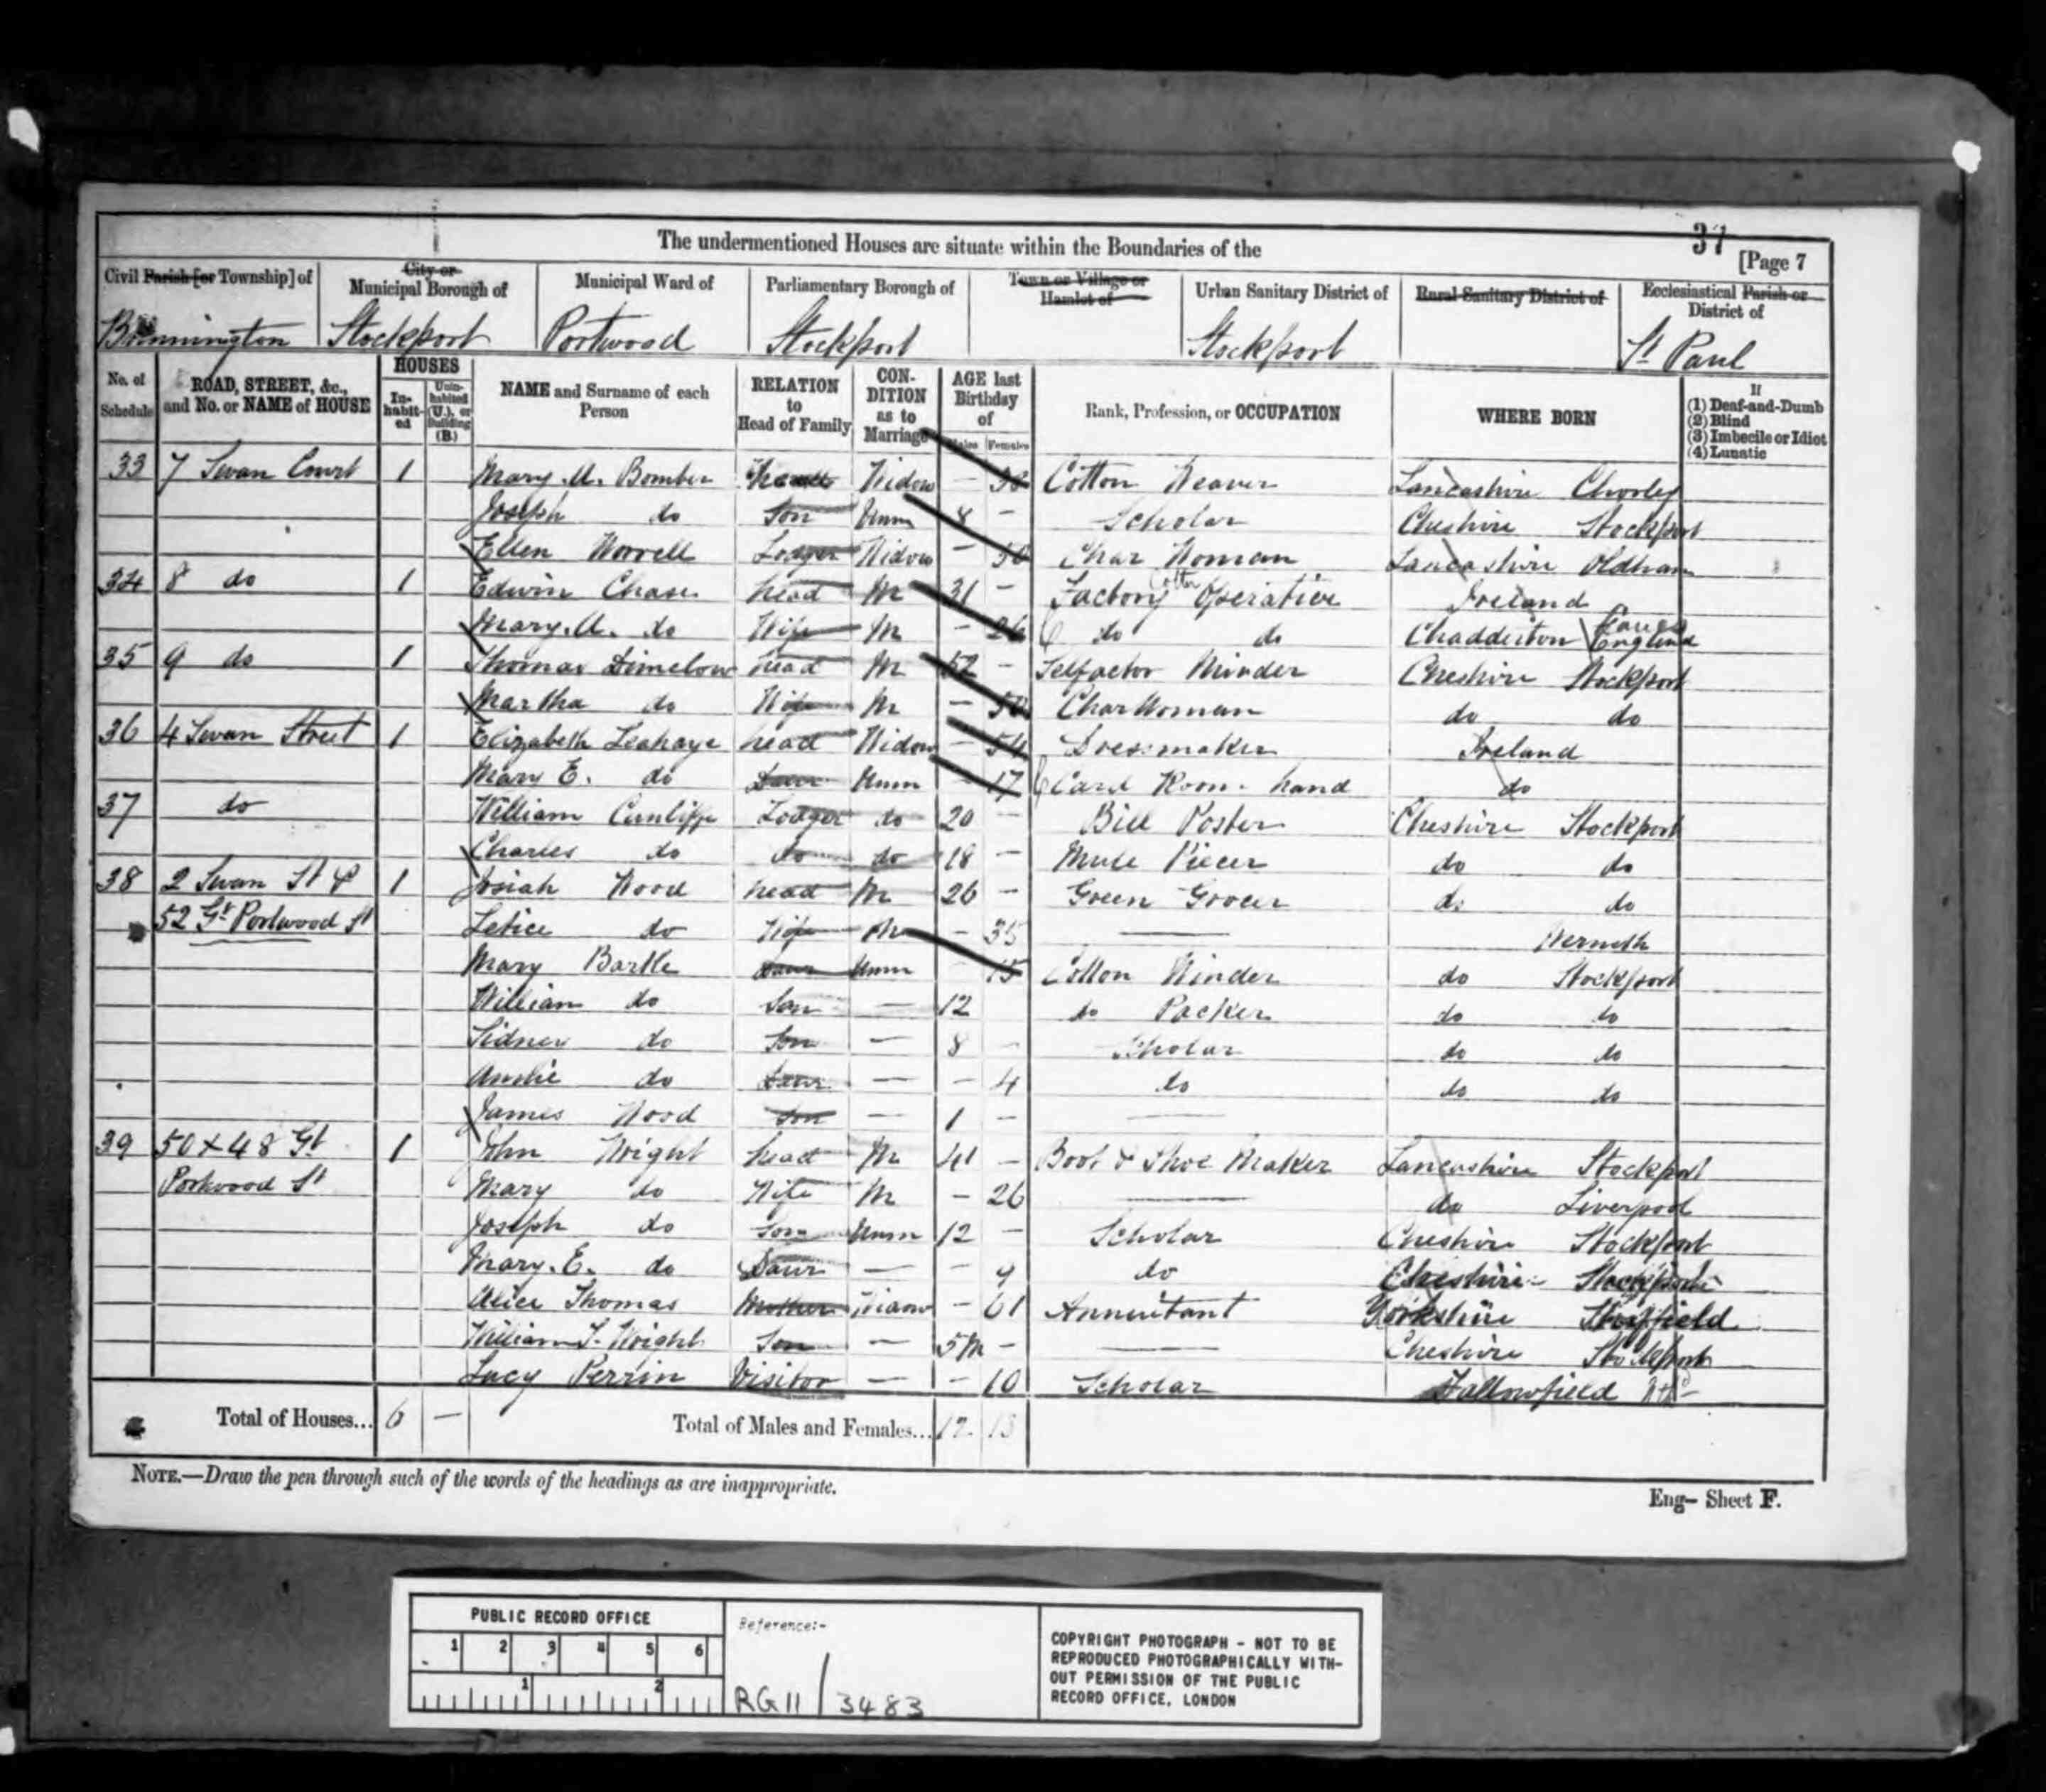 37
The undermentioned Houses are situate within the Boundaries of the [Page 7
Civil Parish [or Township] of City or Municipal Borough of Municipal Ward of Parliamentary Borough of Town or Village or Hamlet of Urban Sanitary District of Rural Sanitary District of Ecclesiastical Parish or District of
Brinnington Stockport Portwood Stockport Stockport St Paul
No. of Schedule ROAD, STREET, &c., and No. or NAME of HOUSE HOUSES Inhabited Uninhabited (U.), or Building (B.) NAME and Surname of each Person RELATION to Head of Family CONDITION as to Marriage AGE last Birthday of Males Females Rank, Profession, or OCCUPATION WHERE BORN If (1) Deaf-and-Dumb (2) Blind (3) Imbecile or Idiot (4) Lunatic
33 7 Swan Court 1 Mary. A. Bomber head Widow – 38 Cotton Weaver Lancashire Chorley
Joseph do Son Unm 8 – Scholar Cheshire Stockport
Ellen Worrell Lodger Widow – 50 Char Woman Lancashire Oldham
34 8 do 1 Edwin Chase head M 31 – Factory Cotton Operative Ireland
Mary. A. do Wife M – 26 do do Chadderton England
35 9 do 1 Thomas Dimelow head M 52 – Selfactor Minder Cheshire Stockport
Martha do Wife M – 50 Char Woman do do
36 4 Swan Street 1 Elizabeth Leahaye head Widow – 54 Dressmaker Ireland
Mary E. do Daur Unm – 17 Card Room hand do
37 do William Cunliffe Lodger do 20 – Bill Poster Cheshire Stockport
Charles do do do 18 – Mule Piecer do do
38 2 Swan St & 1 Josiah Wood head M 26 – Green Grocer do do
52 Gt Portwood St Letice do Wife M – 35 — Werneth
Mary Bartle Daur Unm – 15 Cotton Winder do Stockport
William do Son — 12 do Packer do do
Sidney do Son — 8 – Scholar do do
do Daur — – 4 do do do
James Wood Son — 1 – —
39 50 & 48 Gt 1 John Wright head M 41 – Boot & Shoe Maker Lancashire Stockport
Portwood St Mary do Wife M – 26 — do Liverpool
Joseph do Son Unm 12 – Scholar Cheshire Stockport
Mary. E. do Daur — – 9 do Cheshire Stockport
Alice Thomas Mother Widow – 61 Annuitant Yorkshire
William T. Wright Son — 5m – — Cheshire Stockport
Lucy Perrin Visitor — – 10 Scholar Fallowfield
Total of Houses... 6 – Total of Males and Females... 12 13
NOTE.—Draw the pen through such of the words of the headings as are inappropriate.
Eng– Sheet F.
PUBLIC RECORD OFFICE
1 2 3 4 5 6
1 2
Reference:-
RG 11 / 3483
COPYRIGHT PHOTOGRAPH - NOT TO BE
REPRODUCED PHOTOGRAPHICALLY WITH-
OUT PERMISSION OF THE PUBLIC
RECORD OFFICE, LONDON